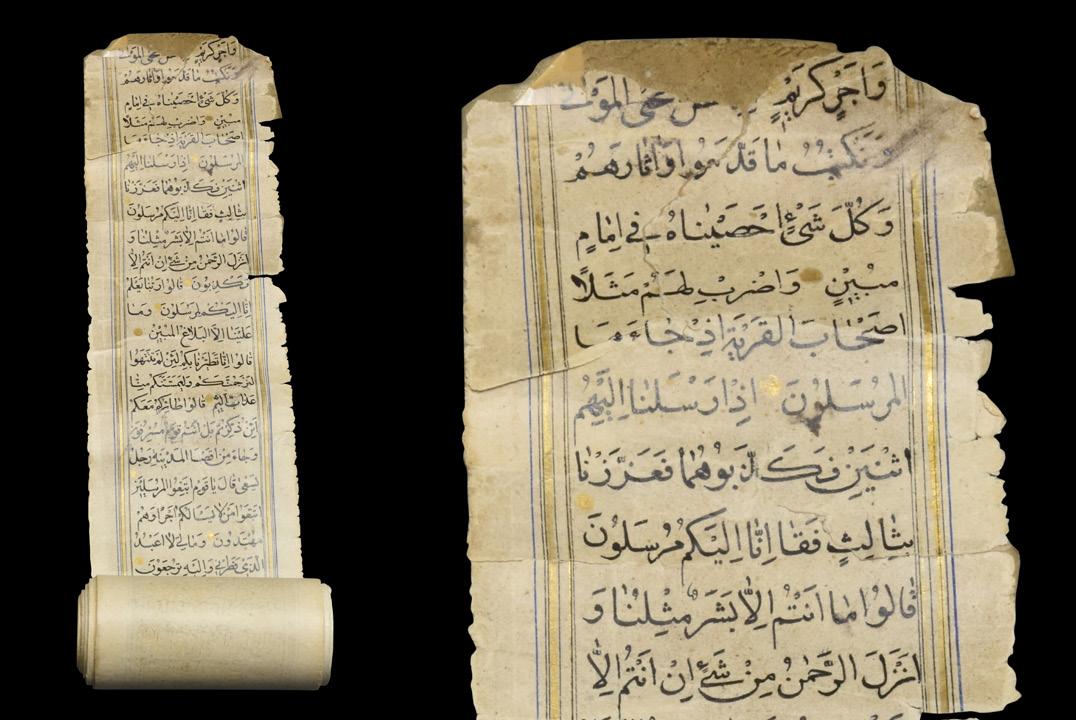 واجر كريم نحى الموتى
ونكتب ما قدموا واثارهم
وكل شئ احصيناه في امام
مبين واضرب لهم مثلا
اصحاب القرية اذ جاءها
المرسلون اذ ارسلنا اليهم
اثنين فكذبوهما فعززنا
بثالث فقا انا اليكم مرسلون
قالوا ما انتم الا بشر مثلنا و
انزل الرحمن من شئ ان انتم الا
تكذبون قالوا ربنا يعلم
انا اليكم لمرسلون وما
علينا الا البلاغ المبين
قالوا انا تطيرنا بكم لئن لم تنتهوا
لنرجمنكم وليمسنكم منا
عذاب اليم قالوا طائركم معكم
ائن ذكرتم بل انتم قوم مسرفون
وجاء من اقصا المدينة رجل
يسعى قال يا قوم اتبعوا المرسلين
اتبعوا من لا يسالكم اجرا وهم
مهتدون ومالي لا اعبد
الذي فطرني واليه ترجعون
وَاَجْرٍ كَرِيْمٍ نحى الْمَوْتى
وَنَكْتُبُ مٰا قَدَّمُوا وَاٰثارَهُمْ
وَكُلَّ شَئٍ اَحْصَيْنٰاهُ فِي اِمٰامٍ
مُبِيْنٍ وَاضْرِبْ لَهُمْ مَثَلًا
اَصْحٰابَ القَرْيَةِ اِذْ جٰاءَهَا
المُرْسَلُونَ اِذْ اَرْسَلْنٰا اِلَيْهِمُ
اثْنَيْنِ فَكَذَّبُوهُمٰا فَعَزَّزْنٰا
بِثٰالِثٍ فَقٰا اِنّٰا اِلَيْكُمْ مُرْسَلُوْنَ
قٰالُوْا مٰا اَنْتُمْ اِلّٰا بَشَرٌ مِثْلُنٰا وَ
اَنْزَلَ الرَّحْمٰنُ مِنْ شَئٍ اِنْ اَنْتُمْ اِلّٰا